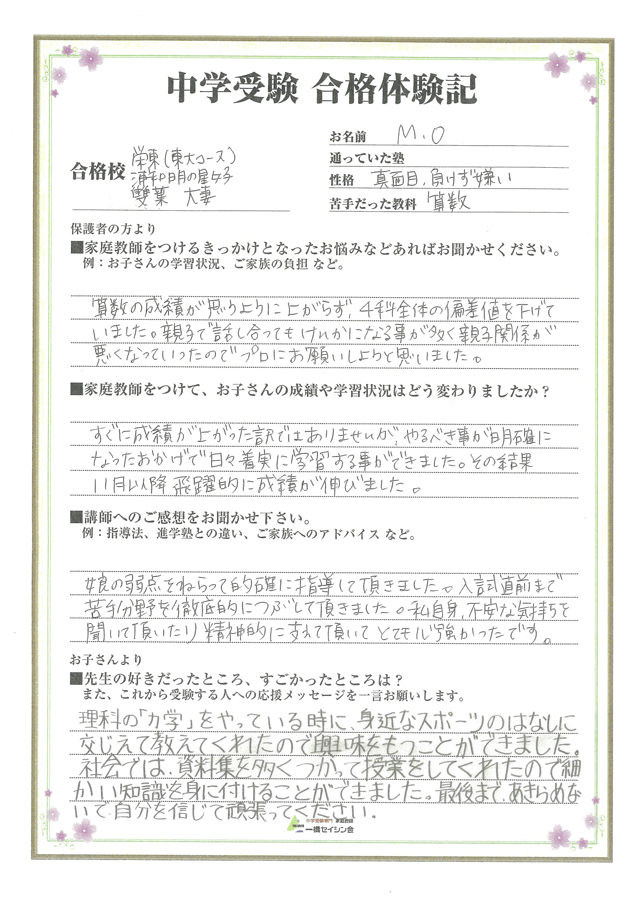 中学受験 合格体験記
合格校
栄東(東大コース)
浦和明の星女子
雙葉 大妻
お名前 M.O
通っていた塾
性格 真面目、負けず嫌い
苦手だった教科 算数
保護者の方より
■家庭教師をつけるきっかけとなったお悩みなどあればお聞かせください。
例：お子さんの学習状況、ご家族の負担 など。
算数の成績が思うように上がらず、4科全体の偏差値を下げて
いました。親子で話し合ってもけんかになる事が多く親子関係が
悪くなっていったのでプロにお願いしようと思いました。
■家庭教師をつけて、お子さんの成績や学習状況はどう変わりましたか？
すぐに成績が上がった訳ではありませんが、やるべき事が明確に
なったおかげで日々着実に学習する事ができました。その結果
11月以降飛躍的に成績が伸びました。
■講師へのご感想をお聞かせ下さい。
例：指導法、進学塾との違い、ご家族へのアドバイス など。
娘の弱点をねらって的確に指導して頂きました。入試直前まで
苦手分野を徹底的につぶして頂きました。私自身、不安な気持ちを
聞いて頂いたり精神的に支えて頂いてとても心強かったです。
お子さんより
■先生の好きだったところ、すごかったところは？
また、これから受験する人への応援メッセージを一言お願いします。
理科の「力学」をやっている時に、身近なスポーツのはなしに
交じえて教えてくれたので興味をもつことができました。
社会では、資料集を多くつかって授業をしてくれたので細
かい知識を身に付けることができました。最後まで、あきらめな
いで自分を信じて頑張ってください.
中学受験専門 家庭教師
一橋セイシン会